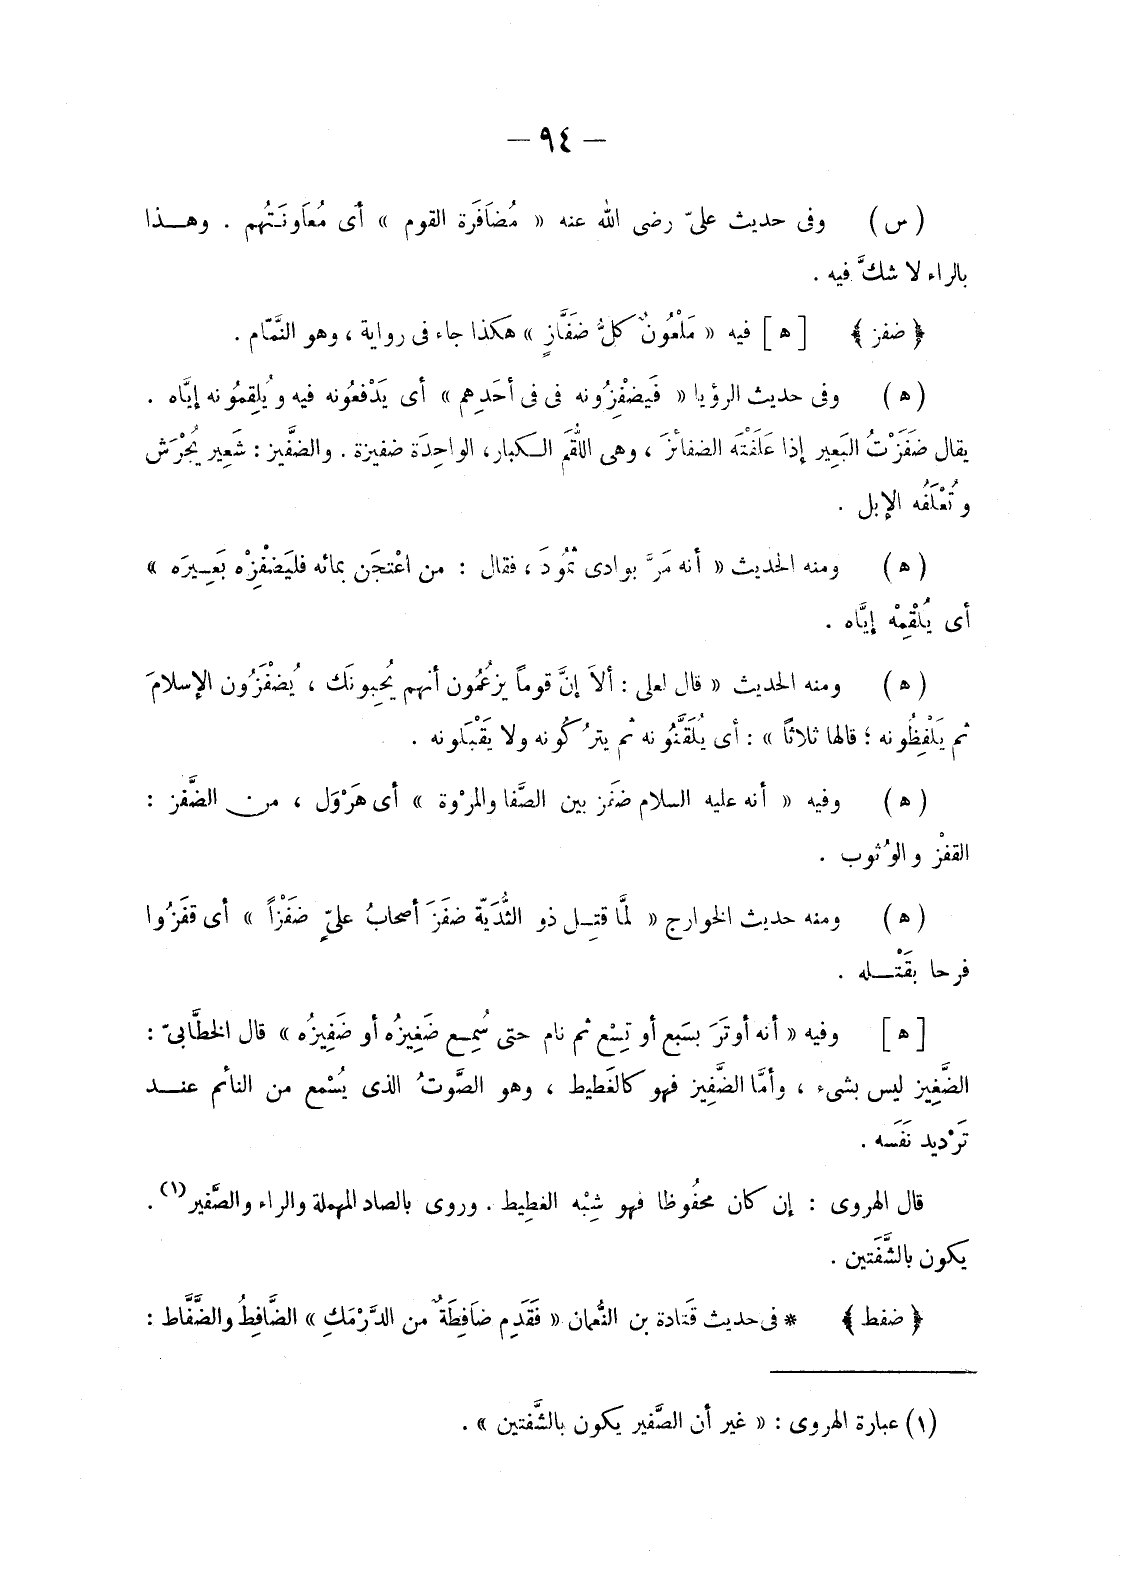 — ٩٤ —
( س ) وفى حديث علىّ رضى الله عنه « مُضَافَرة القوم » أى مُعَاونَتُهم . وهـذا
بالراء لا شكَّ فيه .
﴿ ضفز ﴾ [ ﻫ ] فيه « مَلْعُونٌ كلُّ ضَفَّازٍ » هكذا جاء فى رواية ، وهو النَّمّام .
( ﻫ ) وفى حديث الرؤيا « فَيضْفِزُونه فى فى أحَدِهِم » أى يَدْفعُونه فيه ويُلقِمُونه إيَّاه .
يقال ضَفَزْتُ البَعِير إذا عَلَفْتَه الضفائزَ ، وهى اللُّقَم الـكبار، الواحِدَة ضفيزة . والضَّفيز : شَعِير يُجْرَش
وتُعْلَفُه الإبل .
( ﻫ ) ومنه الحديث « أنه مَرَّ بوادى ثمُودَ ، فقال : من اعْتجَن بمائه فليَضْفِزْه بَعـيرَه »
أى يُلْقِمْه إيَّاه .
( ﻫ ) ومنه الحديث « قال لعلى : ألاَ إنَّ قوماً يزعُمُون أنهم يُحِبونَك ، يُضفْزَُون الإسلامَ
ثم يَلْفِظُونه ؛ قالها ثلاثاً » : أى يُلَقَّنُونه ثم يترُكُونه ولا يَقْبَلونه .
( ﻫ ) وفيه « أنه عليه السلام ضَفَز بين الصَّفا والمرْوة » أى هَرْوَل ، من الضَّفز :
القفْز والوُثوب .
( ﻫ ) ومنه حديث الخوارج « لمَّا قتِـل ذو الثُّدَيَّة ضفَزَ أصحابُ علىّ ضَفْزاً » أى قفَزُوا
فرحا بقَتْـله .
[ ﻫ ] وفيه « أنه أوتَرَ بسَبع أو تِسْع ثم نام حتى سُمِـع ضَغِيزُه أو ضَفِيزُه » قال الخطَّابىّ :
الضَّغِيز ليس بشىء ، وأمَّا الضَّفِيز فهو كالغَطيط ، وهو الصَّوتُ الذى يُسْمع من النائم عنـد
تَرْديد نَفَسه .
قال الهروى : إن كان محفُوظا فهو شِبْه الغطِيط . وروى بالصاد المهملة والراء والصَّفير (١) .
يكون بالشَّفَتين .
﴿ ضفط ﴾ * فى حديث قَتادة بن النُّعمان « فَقَدِم ضَافِطَةٌ من الدَّرْمَكِ » الضَّافِطُ والضَّفَّاط :
(١) عبارة الهروى : « غير أن الصَّفير يكون بالشَّفتين » .